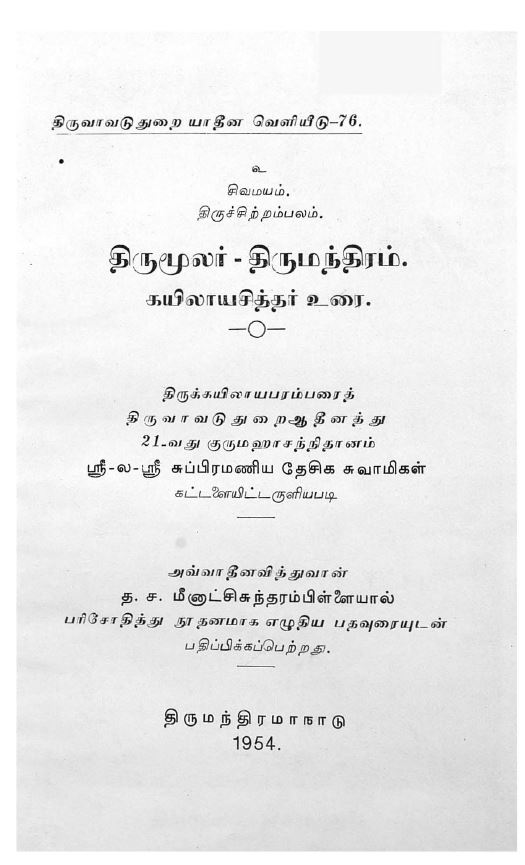 திருவாவடுதுறை யாதீன வெளியீடு–76.
உ
சிவமயம்.
திருச்சிற்றம்பலம்.
திருமூலர் - திருமந்திரம்.
கயிலாயசித்தர் உரை.
திருக்கயிலாயபரம்பரைத்
திருவாவடுதுறைஆதீனத்து
21-வது குருமஹாசந்நிதானம்
ஸ்ரீ-ல-ஸ்ரீ சுப்பிரமணிய தேசிக சுவாமிகள்
கட்டளையிட்டருளியபடி
அவ்வாதீனவித்துவான்
த. ச. மீனாட்சிசுந்தரம்பிள்ளையால்
பரிசோதித்து நூதனமாக எழுதிய பதவுரையுடன்
பதிப்பிக்கப்பெற்றது.
திருமந்திரமாநாடு
1954.